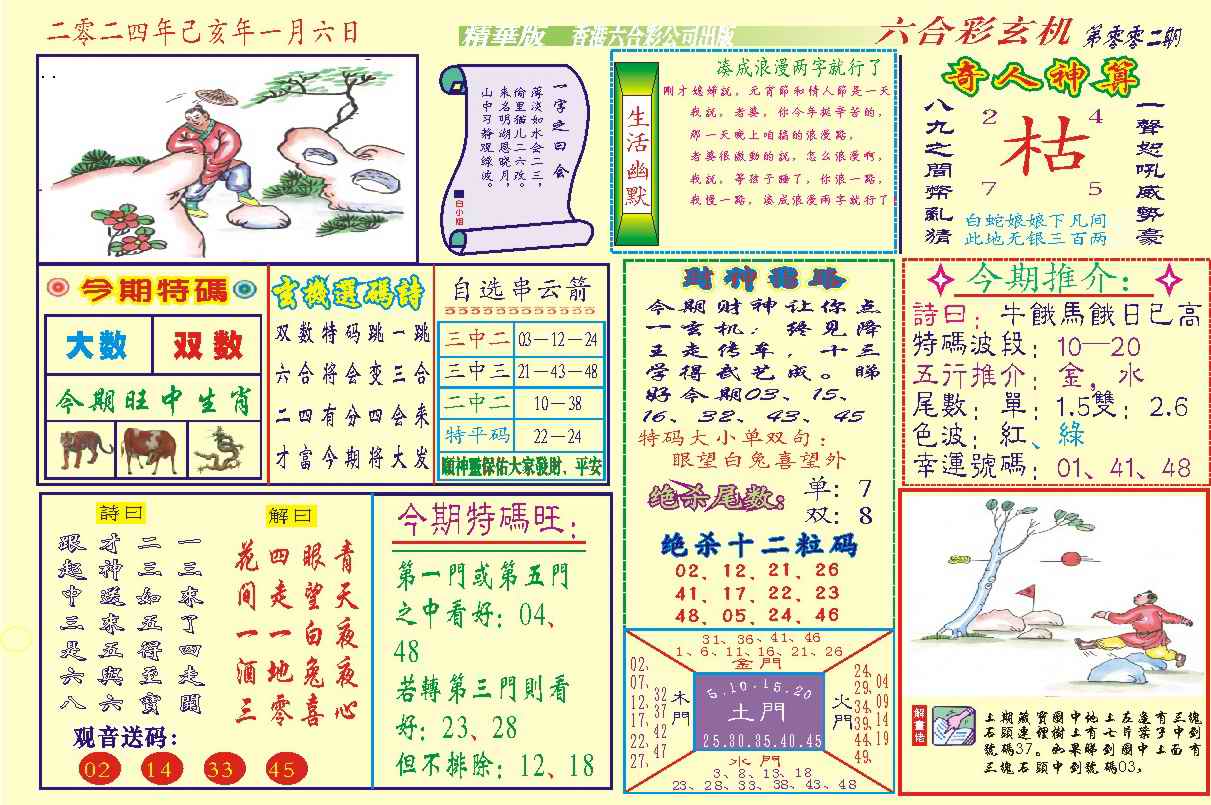 二零二四年己亥年一月六日
精華版 香港六合彩公司出版
六合彩玄机 第零零二期
一字之曰会
薄淡如水会二三，
偷里猫儿二六改。
来名明湖恩晓月，
山中习静观绿波。
白小姐
生活幽默
凑成浪漫两字就行了
刚才媳婦説，元宵節和情人節是一天
我説，老婆，你今年挺辛苦的，
那一天晚上咱搞的浪漫點，
老婆很激動的説，怎么浪漫啊，
我説，等孩子睡了，你浪一點，
我慢一點，凑成浪漫兩字就行了
奇人神算
一聲怒吼威勢豪
八九之間幣亂猜
2 4
枯
7 5
白蛇娘娘下凡间
此地无银三百两
今期特碼
大数 双数
今期旺中生肖
玄機選碼詩
双数特码跳一跳
六合将会变三合
二四有分四会来
才富今期将大发
自选串云箭
三中二 03—12—24
三中三 21—43—48
二中二 10—38
特平码 22—24
願神靈保佑大家發財、平安
財神點路
今期财神让你点
一玄机：终见降
王走传车，十三
学得武艺成。睇
好今期03、15、
16、32、43、45
特码大小单双句：
眼望白兔喜望外
绝杀尾数： 单：7
双：8
绝杀十二粒码
02、12、21、26
41、17、22、23
48、05、24、46
今期推介：
詩曰：牛餓馬餓日已高
特碼波段：10—20
五行推介：金，水
尾數：單：1.5雙：2.6
色波：紅、綠
幸運號碼：01、41、48
詩曰
一三來了四走開
二三如五得至寶
才神送來五與六
跟起中三是六八
解曰
青天夜夜心
眼望白兔喜
四走一地零
花间一酒三
观音送码：
02 14 33 45
今期特碼旺：
第一門或第五門
之中看好：04、
48
若轉第三門則看
好：23、28
但不排除：12、18
31、36、41、46
1、6、11、16、21、26
金門
02、
07、
12、
17、
22、
27、
32
37
42
47
木門
5.10.15.20
土門
25.30.35.40.45
火門
24、
29、
34、
39、
44、
49、
04
09
14
19
水門
3、8、13、18
23、28、33、38、43、48
解畫佬
上期藏寶圖中地上左邊有三塊
石頭連樹上有七片葉子中到
號碼37。如果睇到圖中上面有
三塊石頭中到號碼03，